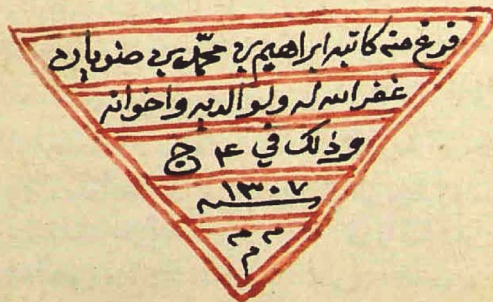 فرغ منه كاتبه ابراهيم بن محمد بن ضويان
غفر الله له ولوالديه واخوانه
وذلك في ٤ ج
سنة ١٣٠٧
م م م